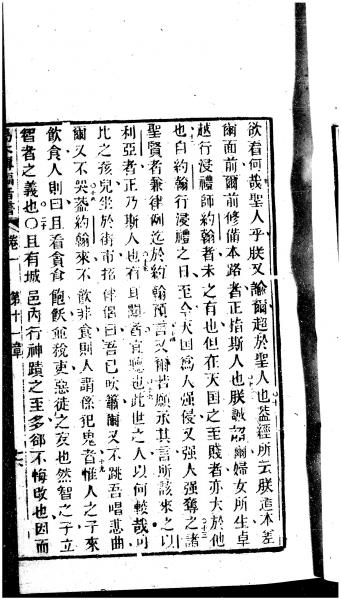 欲看何哉聖人乎朕又諭爾超於聖人也蓋經所云朕遣本差
爾面前爾前修備本路者正指斯人也朕誠語爾婦女所生卓
越行浸禮師約翰者未之有也但在天国之至賤者亦大於他
也自約翰行浸禮之日至今天国為人強侵又强人強奪之諸
聖賢者兼律例迄於約翰預言又爾若願承其言所該來之以
利亞者正乃斯人也有耳聽者宜聽也此世之人以何較哉可
比之孩兒坐於街市搖伴侶曰吾已吹籥爾又不跳吾唱悲曲
爾又不哭蓋約翰來不飲非食則人謂係犯鬼者惟人之子來
飲食人則曰且看貪食飽飲爺稅吏惡徒之友也然智之子立
智者之義也○且有城邑內行神蹟之至多郤不悔改也因而
卷一 第十一章